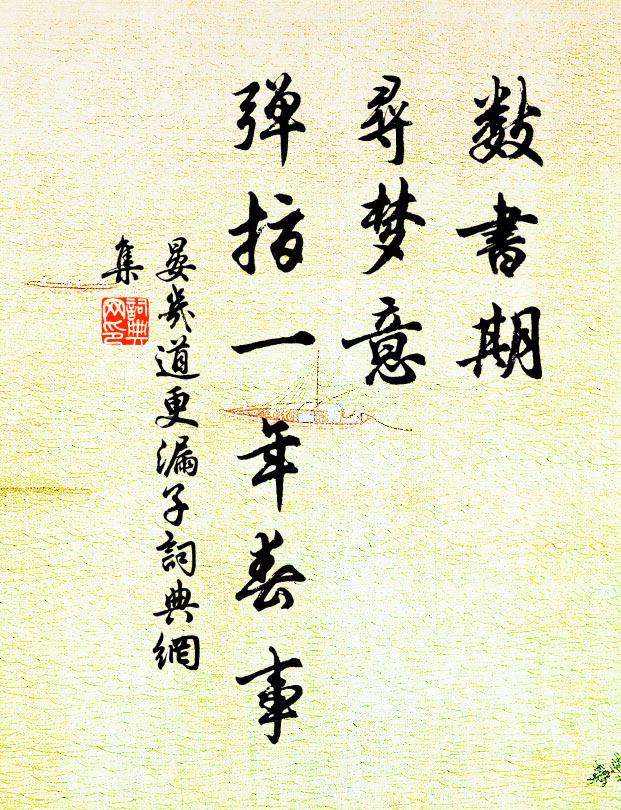 数書期
尋梦意
弹指一年春事
晏幾道更漏子詞典網
集
詞典
网印